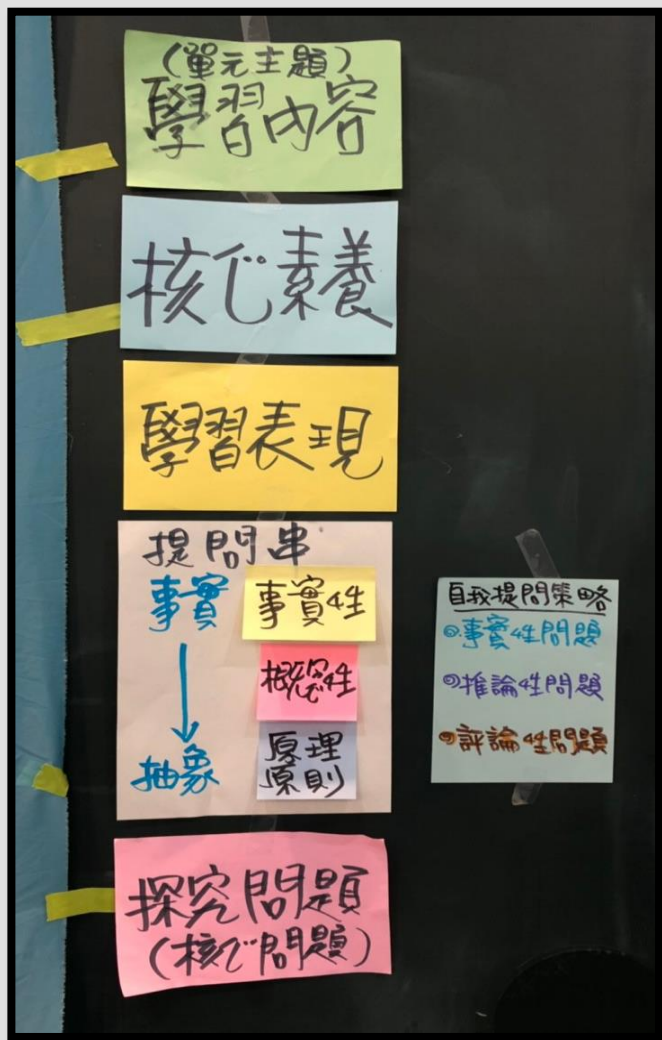 (單元主題)
學習內容
核心素養
學習表現
提問串
事實
抽象
事實性
概念性
原理
原則
探究問題
(核心問題)
自我提問策略
事實性問題
推論性問題
評論性問題